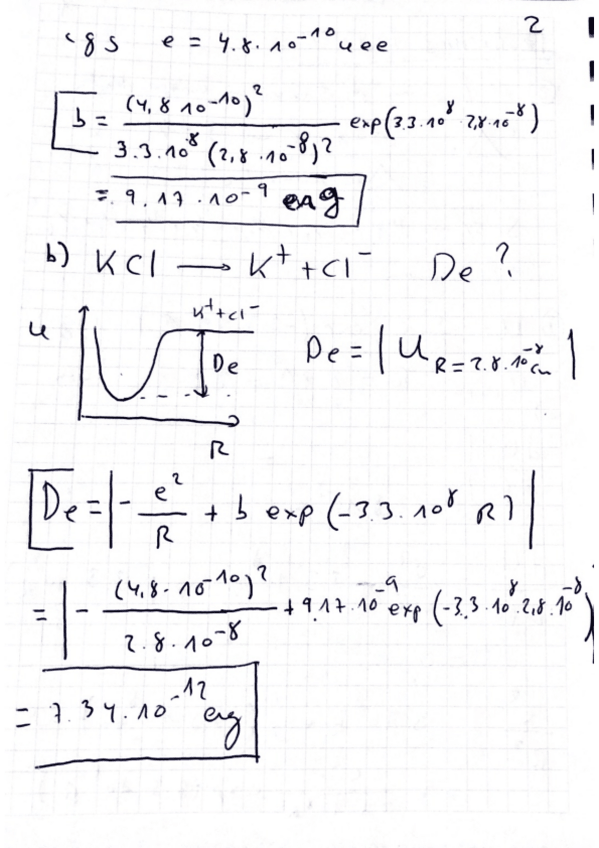 2
cgs e = 4.8·10⁻¹⁰ uee
b = (4,8 10⁻¹⁰)² / 3.3·10⁸ (2,8·10⁻⁸)² exp(3.3·10⁸ 2,8·10⁻⁸)
= 9.17·10⁻⁹ erg
b) KCl → K⁺ + Cl⁻ De ?
u K⁺+Cl⁻ De R
De = | U R=2.8·10⁻⁸cm |
De = | - e²/R + b exp (-3.3·10⁸ R) |
= | - (4,8·10⁻¹⁰)² / 2.8·10⁻⁸ + 9.17·10⁻⁹ exp (-3,3·10⁸·2,8·10⁻⁸)
= 7.34·10⁻¹² erg